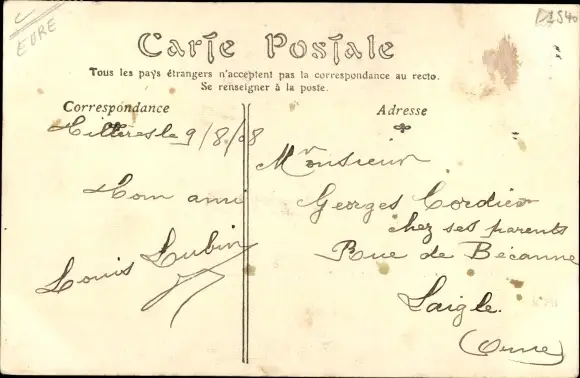 EURE
Carte Postale
Tous les pays étrangers n'acceptent pas la correspondance au recto.
Se renseigner à la poste.
Correspondance
Tillères le 9/8/08
Mon ami
Louis Lubin
Adresse
Monsieur
Georges Cordier
chez ses parents
Rue de Bécanne
Laigle.
(Orne)